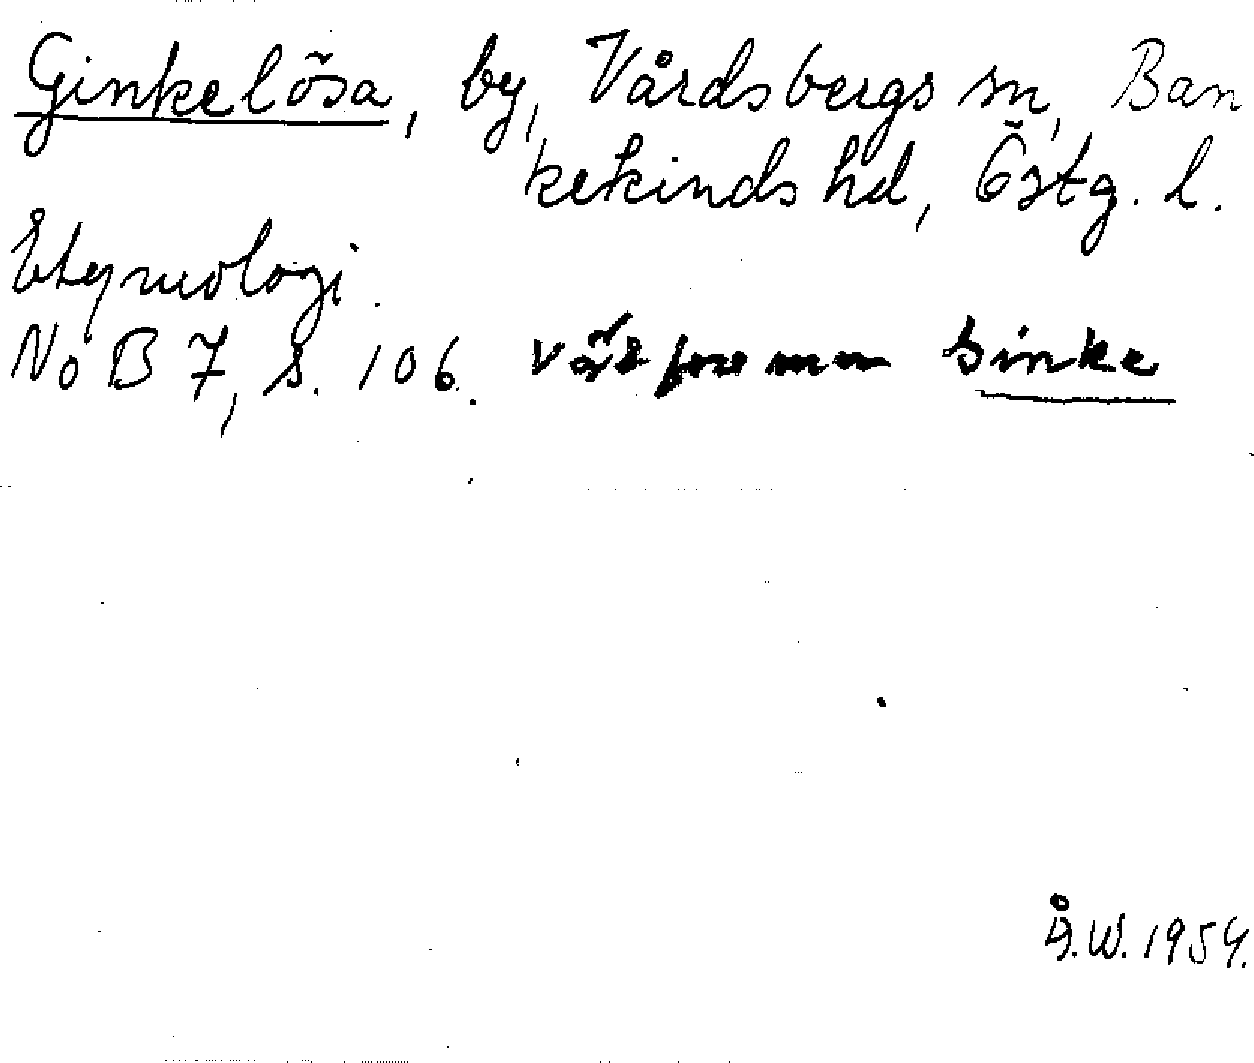 Ginkelösa, by, Vårdsbergs sn, Ban
kekinds hd, Östg. l.
Etymologi.
NoB 7, s. 106. Sinke
Å.W. 1954.